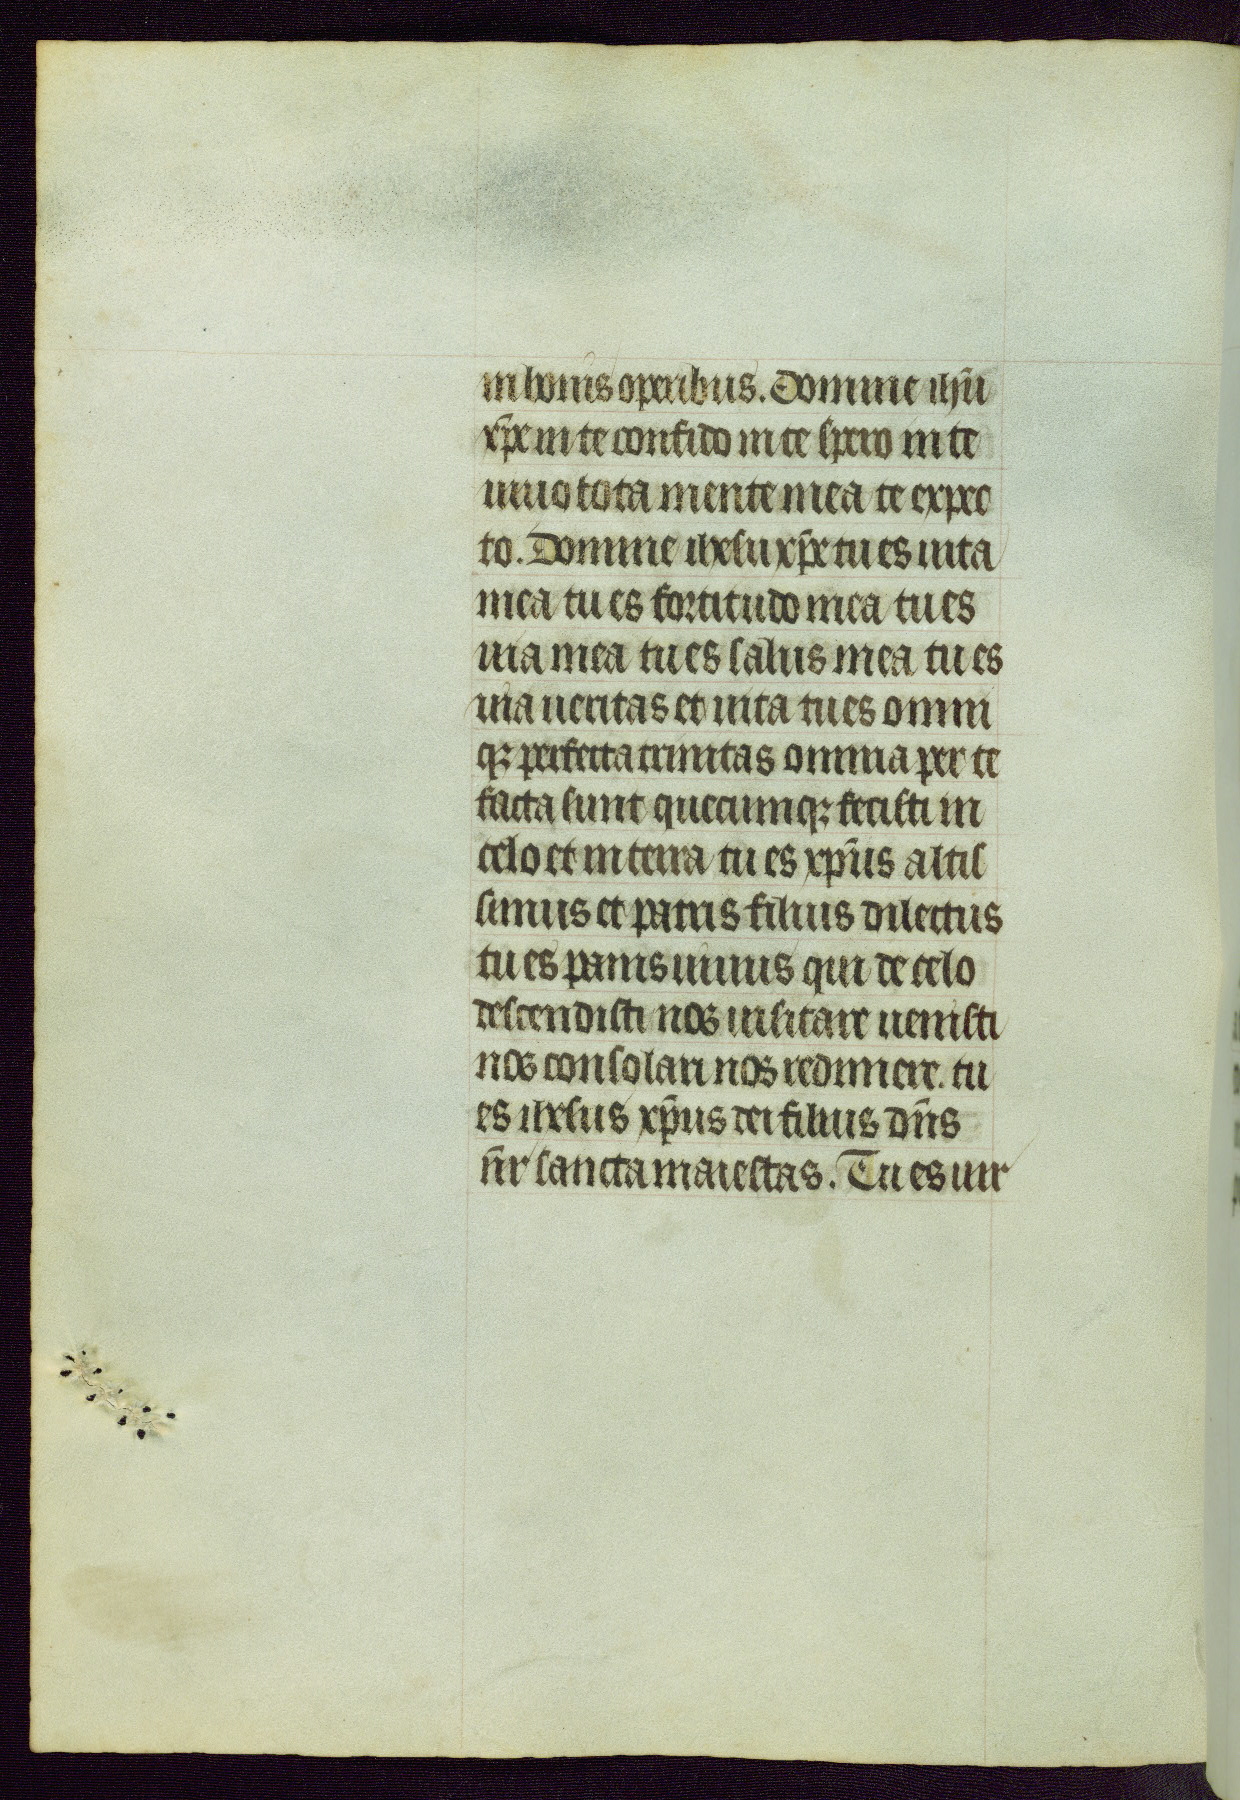 in bonis operibus. Domine ihũ
xp̃e in te confido in te spero in te
uiuo tota mente mea te expec
to. Domine ihesu xp̃e tu es uita
mea tu es fortitudo mea tu es
uia mea tu es salus mea tu es
uia ueritas et uita tu es omni
qꝫ perfecta trinitas omnia per te
facta sunt quecumqꝫ fecisti in
celo et in terra tu es xp̃us altis
simus et patris filius dilectus
tu es panis uiuus qui de celo
descendisti nos uisitare uenisti
nos consolari nos redimere. tu
es ihesus xp̃us dei filius dñs
ñr sancta maiestas. Tu es uir